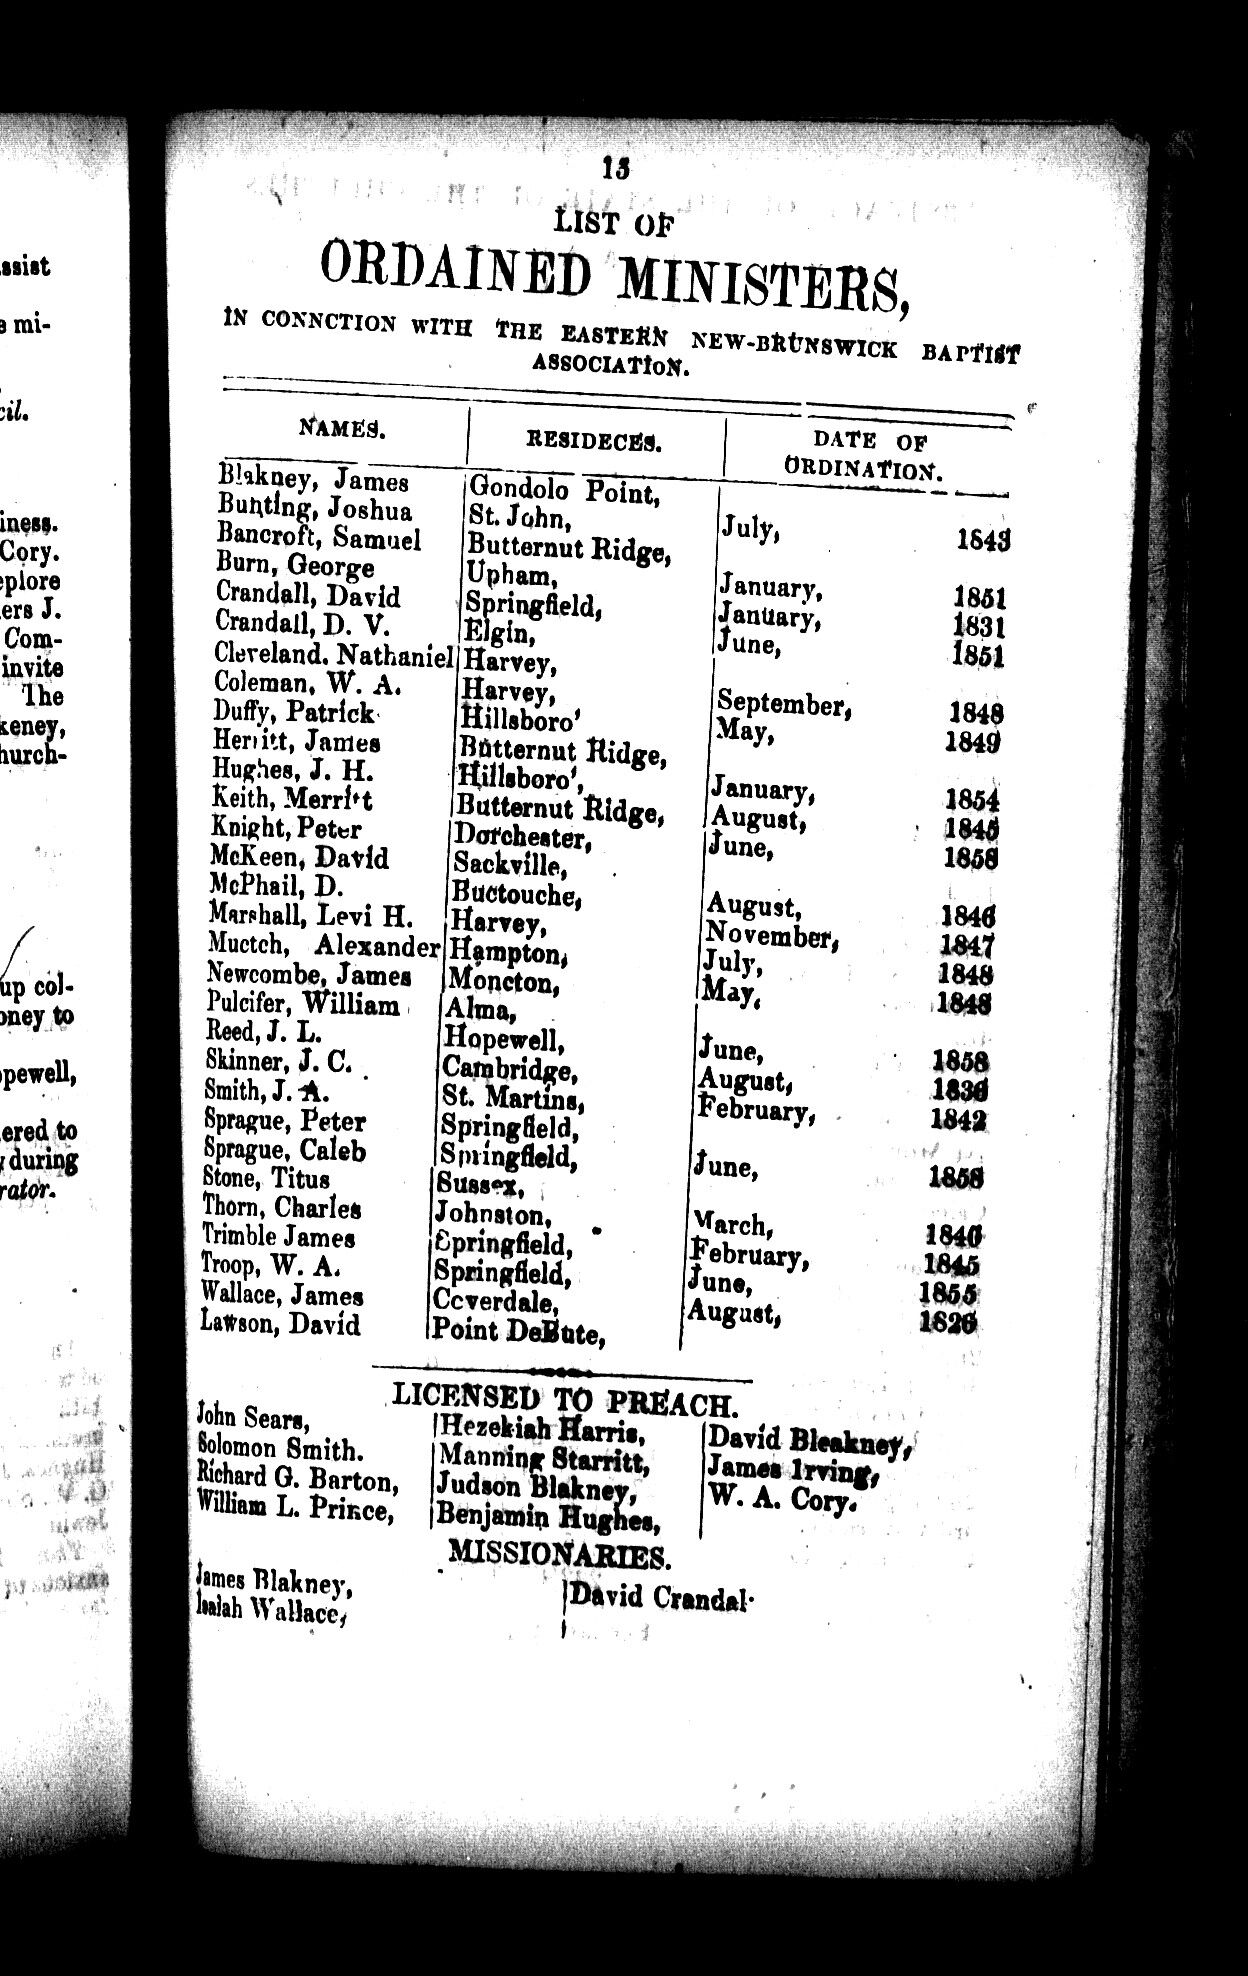 mi-
iness.
Cory.
J.
Com-
invite
The
up col-
to
ered to
during
15
LIST OF
ORDAINED MINISTERS,
IN CONNCTION WITH THE EASTERN NEW-BRUNSWICK BAPTIST
ASSOCIATION.
NAMES. RESIDECES. DATE OF
ORDINATION.
Blakney, James Gondolo Point,
Bunting, Joshua St. John, July, 1843
Bancroft, Samuel Butternut Ridge,
Burn, George Upham, January, 1851
Crandall, David Springfield, January, 1831
Crandall, D. V. Elgin, June, 1851
Cleveland. Nathaniel Harvey,
Coleman, W. A. Harvey, September, 1848
Duffy, Patrick Hillsboro' May, 1849
Herritt, James Butternut Ridge,
Hughes, J. H. Hillsboro', January, 1854
Keith, Merritt Butternut Ridge, August, 1845
Knight, Peter Dorchester, June, 1858
McKeen, David Sackville,
McPhail, D. Buctouche, August, 1846
Marshall, Levi H. Harvey, November, 1847
Muctch, Alexander Hampton, July, 1848
Newcombe, James Moncton, May, 1848
Pulcifer, William Alma,
Reed, J. L. Hopewell, June, 1858
Skinner, J. C. Cambridge, August, 1836
Smith, J. A. St. Martins, February, 1842
Sprague, Peter Springfield,
Sprague, Caleb Springfield, June, 1858
Stone, Titus Sussex,
Thorn, Charles Johnston, March, 1840
Trimble James Springfield, February, 1845
Troop, W. A. Springfield, June, 1855
Wallace, James Coverdale, August, 1826
Lawson, David Point DeBute,
LICENSED TO PREACH.
John Sears, Hezekiah Harris, David Bleakney,
Solomon Smith. Manning Starritt, James Irving,
Richard G. Barton, Judson Blakney, W. A. Cory.
William L. Prince, Benjamin Hughes,
MISSIONARIES.
James Blakney, David Crandal
Isaiah Wallace,